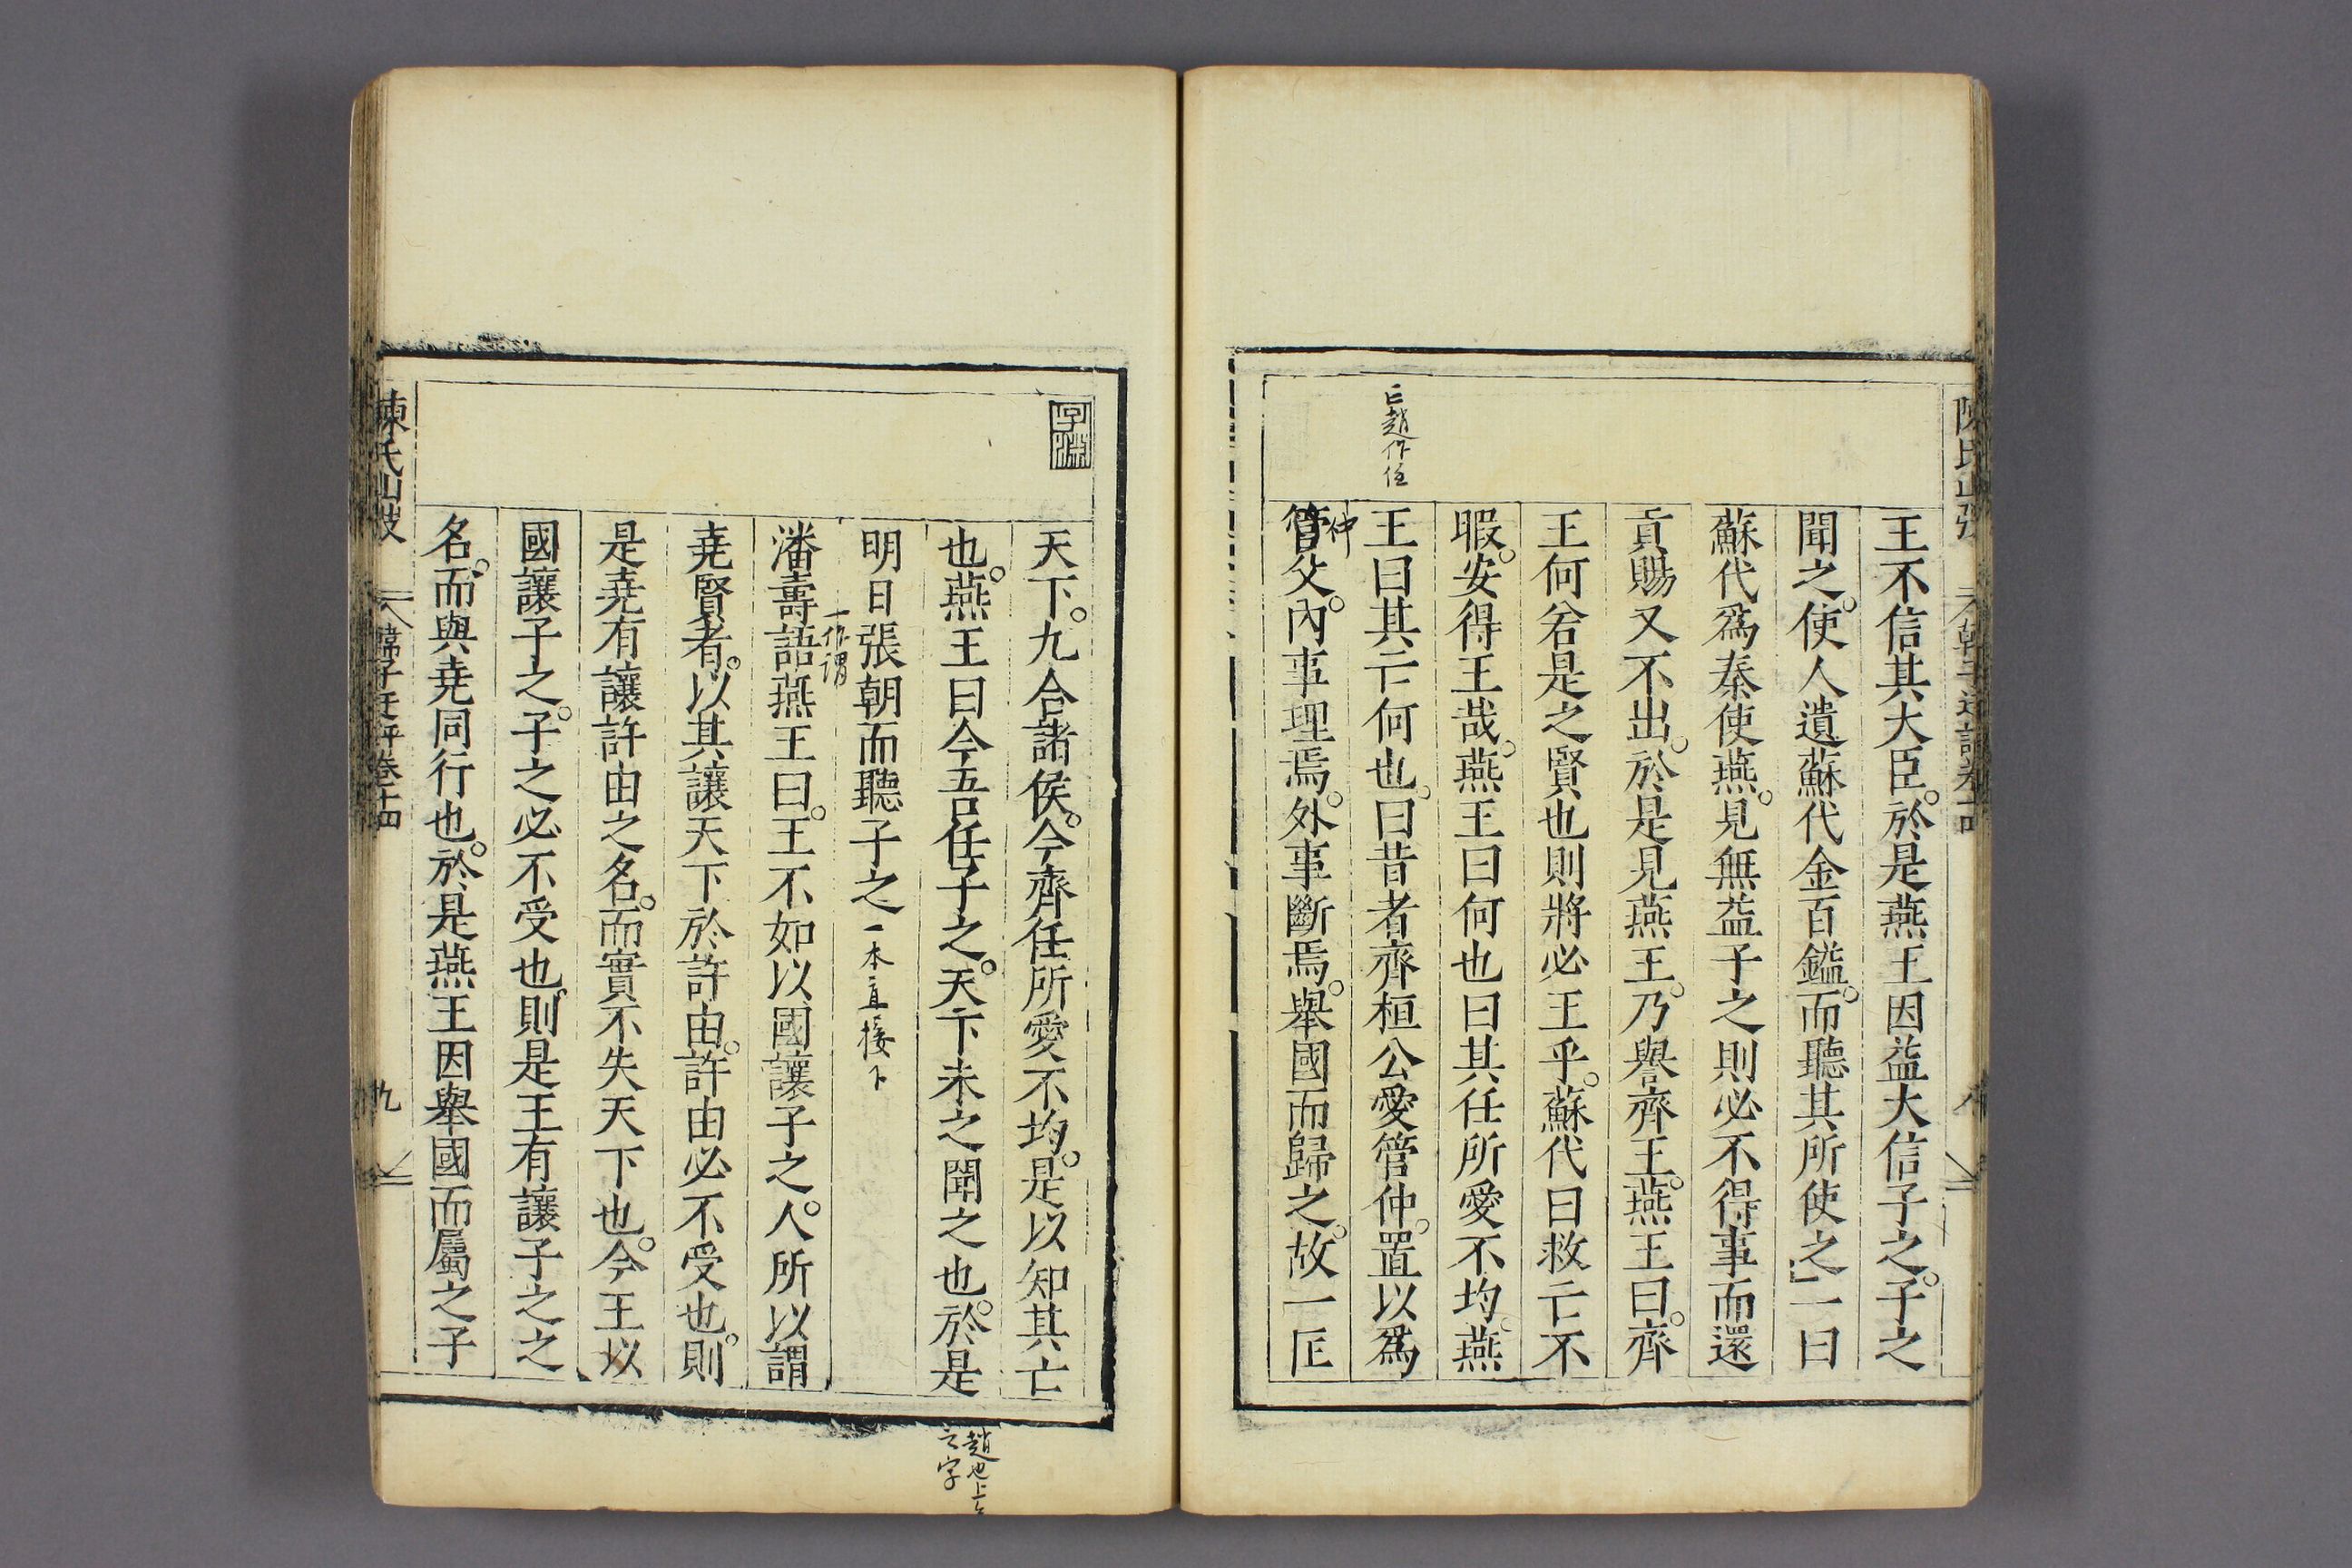 王不信其大臣。於是燕王因益大信子之。子之
聞之。使人遺蘇代金百鎰。而聽其所使之」一曰
蘇代爲秦使燕。見無益子之則必不得事而還
貢賜又不出。於是見燕王。乃譽齊王。燕王曰。齊
王何若是之賢也則將必王乎。蘇代曰救亡不
暇。安得王哉。燕王曰何也曰其任所愛不均。燕
亡趙作任
王曰其亡何也。曰昔者齊桓公愛管仲。置以爲
仲
管父。內事理焉。外事斷焉。舉國而歸之。故一匡
天下。九合諸侯。今齊任所愛不均。是以知其亡
也。燕王曰今吾任子之。天下未之聞之也。於是
趙也上
之字
明日張朝而聽子之一本直接下
一作謂
潘壽語燕王曰。王不如以國讓子之。人所以謂
堯賢者。以其讓天下於許由。許由必不受也。則
是堯有讓許由之名。而實不失天下也。今王以
國讓子之。子之必不受也。則是王有讓子之之
名。而與堯同行也。於是燕王因舉國而屬之子
陳氏
韓子迂評卷十四
九